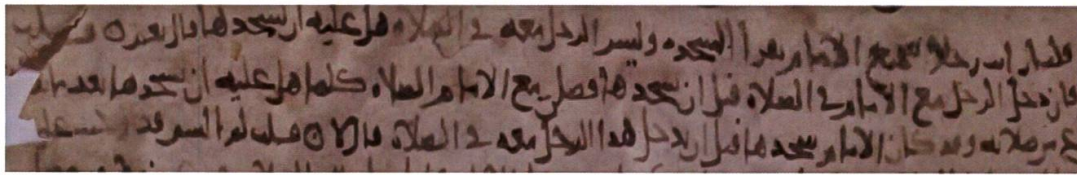 قلت ان رجلا سمع الامام يقرا السجده وليس الرجل معه في الصلاة هل عليه ان يسجدها قال نعم ٥ قلت
فان دخل الرجل مع الامام في الصلاة قبل ان يسجدها فصلى مع الامام الصلاة كلها هل عليه ان يسجدها بعد ما
من صلاته وقد كان الامام سجدها قبل ان يدخل هذا الرجل معه في الصلاة قال لا ٥ قلت لم اليس قد